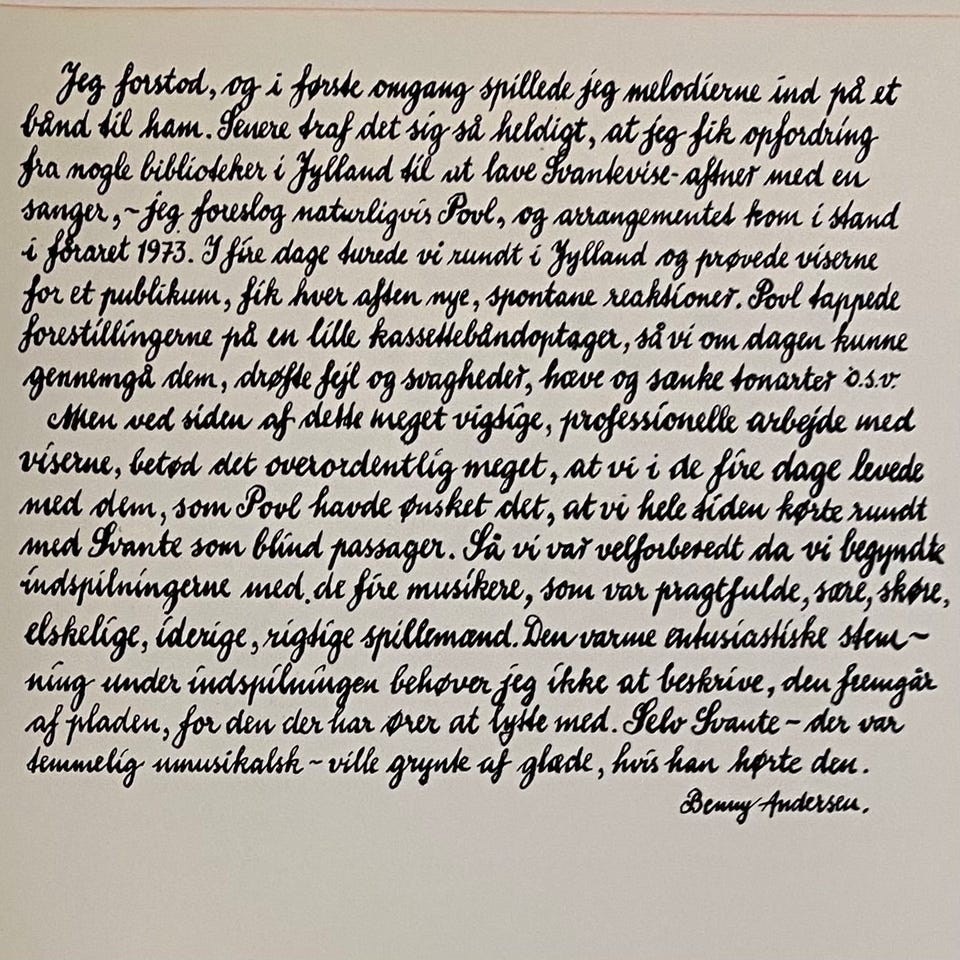 Jeg forstod, og i første omgang spillede jeg melodierne ind på et
bånd til ham. Senere traf det sig så heldigt, at jeg fik opfordring
fra nogle biblioteker i Jylland til at lave Svantevise-aftner med en
sanger, - jeg foreslog naturligvis Povl, og arrangementet kom i stand
i foråret 1973. I fire dage turede vi rundt i Jylland og prøvede viserne
for et publikum, fik hver aften nye, spontane reaktioner. Povl tappede
forestillingerne på en lille kassettebåndoptager, så vi om dagen kunne
gennemgå dem, drøfte fejl og svagheder, hæve og sænke tonarter o.s.v.
Men ved siden af dette meget vigtige, professionelle arbejde med
viserne, betød det overordentlig meget, at vi i de fire dage levede
med dem, som Povl havde ønsket det, at vi hele tiden kørte rundt
med Svante som blind passager. Så vi var velforberedt da vi begyndte
indspilningerne med de fire musikere, som var pragtfulde, sære, skøre,
elskelige, iderige, rigtige spillemænd. Den varme entusiastiske stem-
ning under indspilningen behøver jeg ikke at beskrive, den fremgår
af pladen, for den der har ører at lytte med. Selv Svante - der var
temmelig umusikalsk - ville grynte af glæde, hvis han hørte den.
Benny Andersen.